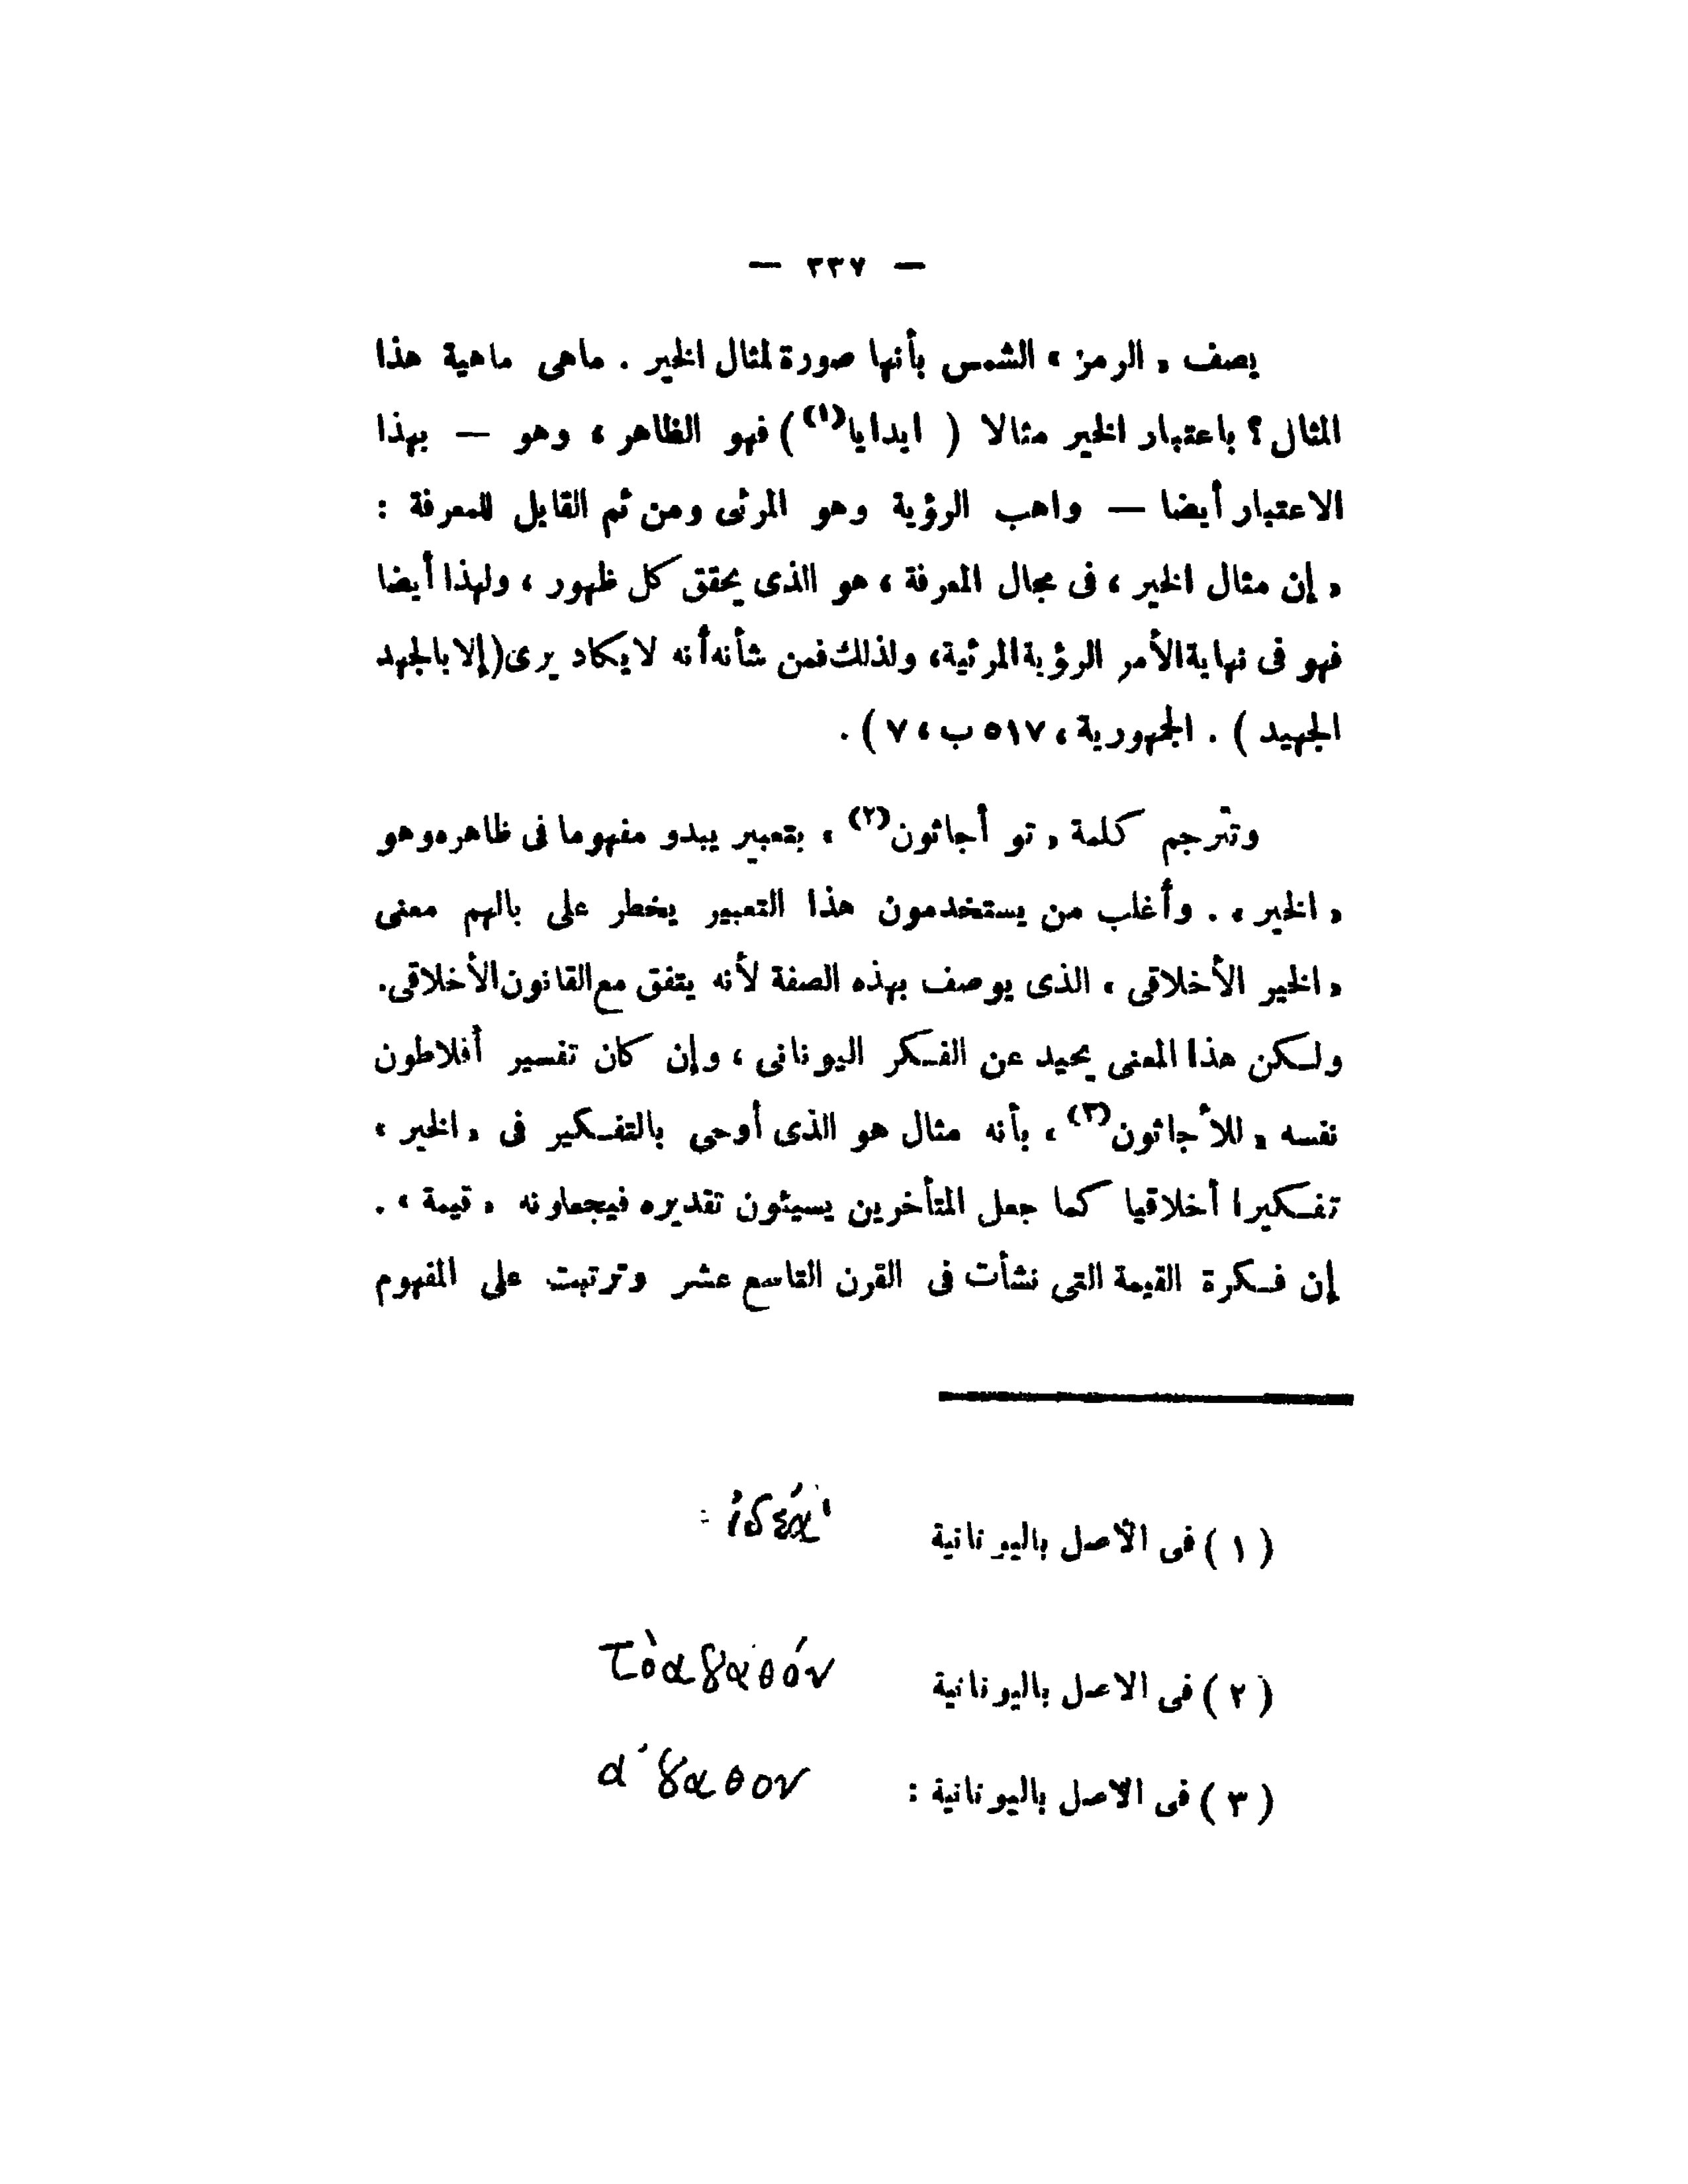 — ٣٣٧ —
يصف « الرمز » الشمس بأنها صورة لمثال الخير . ماهى ماهية هذا
المثال ؟ باعتبار الخير مثالا ( ايدايا(١) ) فهو الظاهر ، وهو — بهذا
الاعتبار أيضا — واهب الرؤية وهو المرئى ومن ثم القابل للمعرفة :
« إن مثال الخير ، فى مجال المعرفة ، هو الذى يحقق كل ظهور ، ولهذا أيضا
فهو فى نهاية الأمر الرؤية المرئية، ولذلك فمن شأنه أنه لا يكاد يرى (إلا بالجهد
الجهيد ) . الجمهورية ، ٥١٧ ب ، ٧ ) .
وتترجم كلمة « تو أجاثون(٢) » بتعبير يبدو مفهوما فى ظاهره وهو
« الخير » . وأغلب من يستخدمون هذا التعبير يخطر على بالهم معنى
« الخير الأخلاقى » الذى يوصف بهذه الصفة لأنه يتفق مع القانون الأخلاقى.
ولكن هذا المعنى يحيد عن الفكر اليونانى ، وإن كان تفسير أفلاطون
نفسه « للأجاثون(٣) » بأنه مثال هو الذى أوحى بالتفكير فى « الخير »
تفكيرا أخلاقيا كما جعل المتأخرين يسيئون تقديره فيجعلونه « قيمة » .
إن فكرة القيمة التى نشأت فى القرن التاسع عشر وترتبت على المفهوم
( ١ ) فى الأصل باليونانية : ἰδέα
( ٢ ) فى الاصل باليونانية τὸ ἀγαθόν
( ٣ ) فى الاصل باليونانية : ἀγαθον